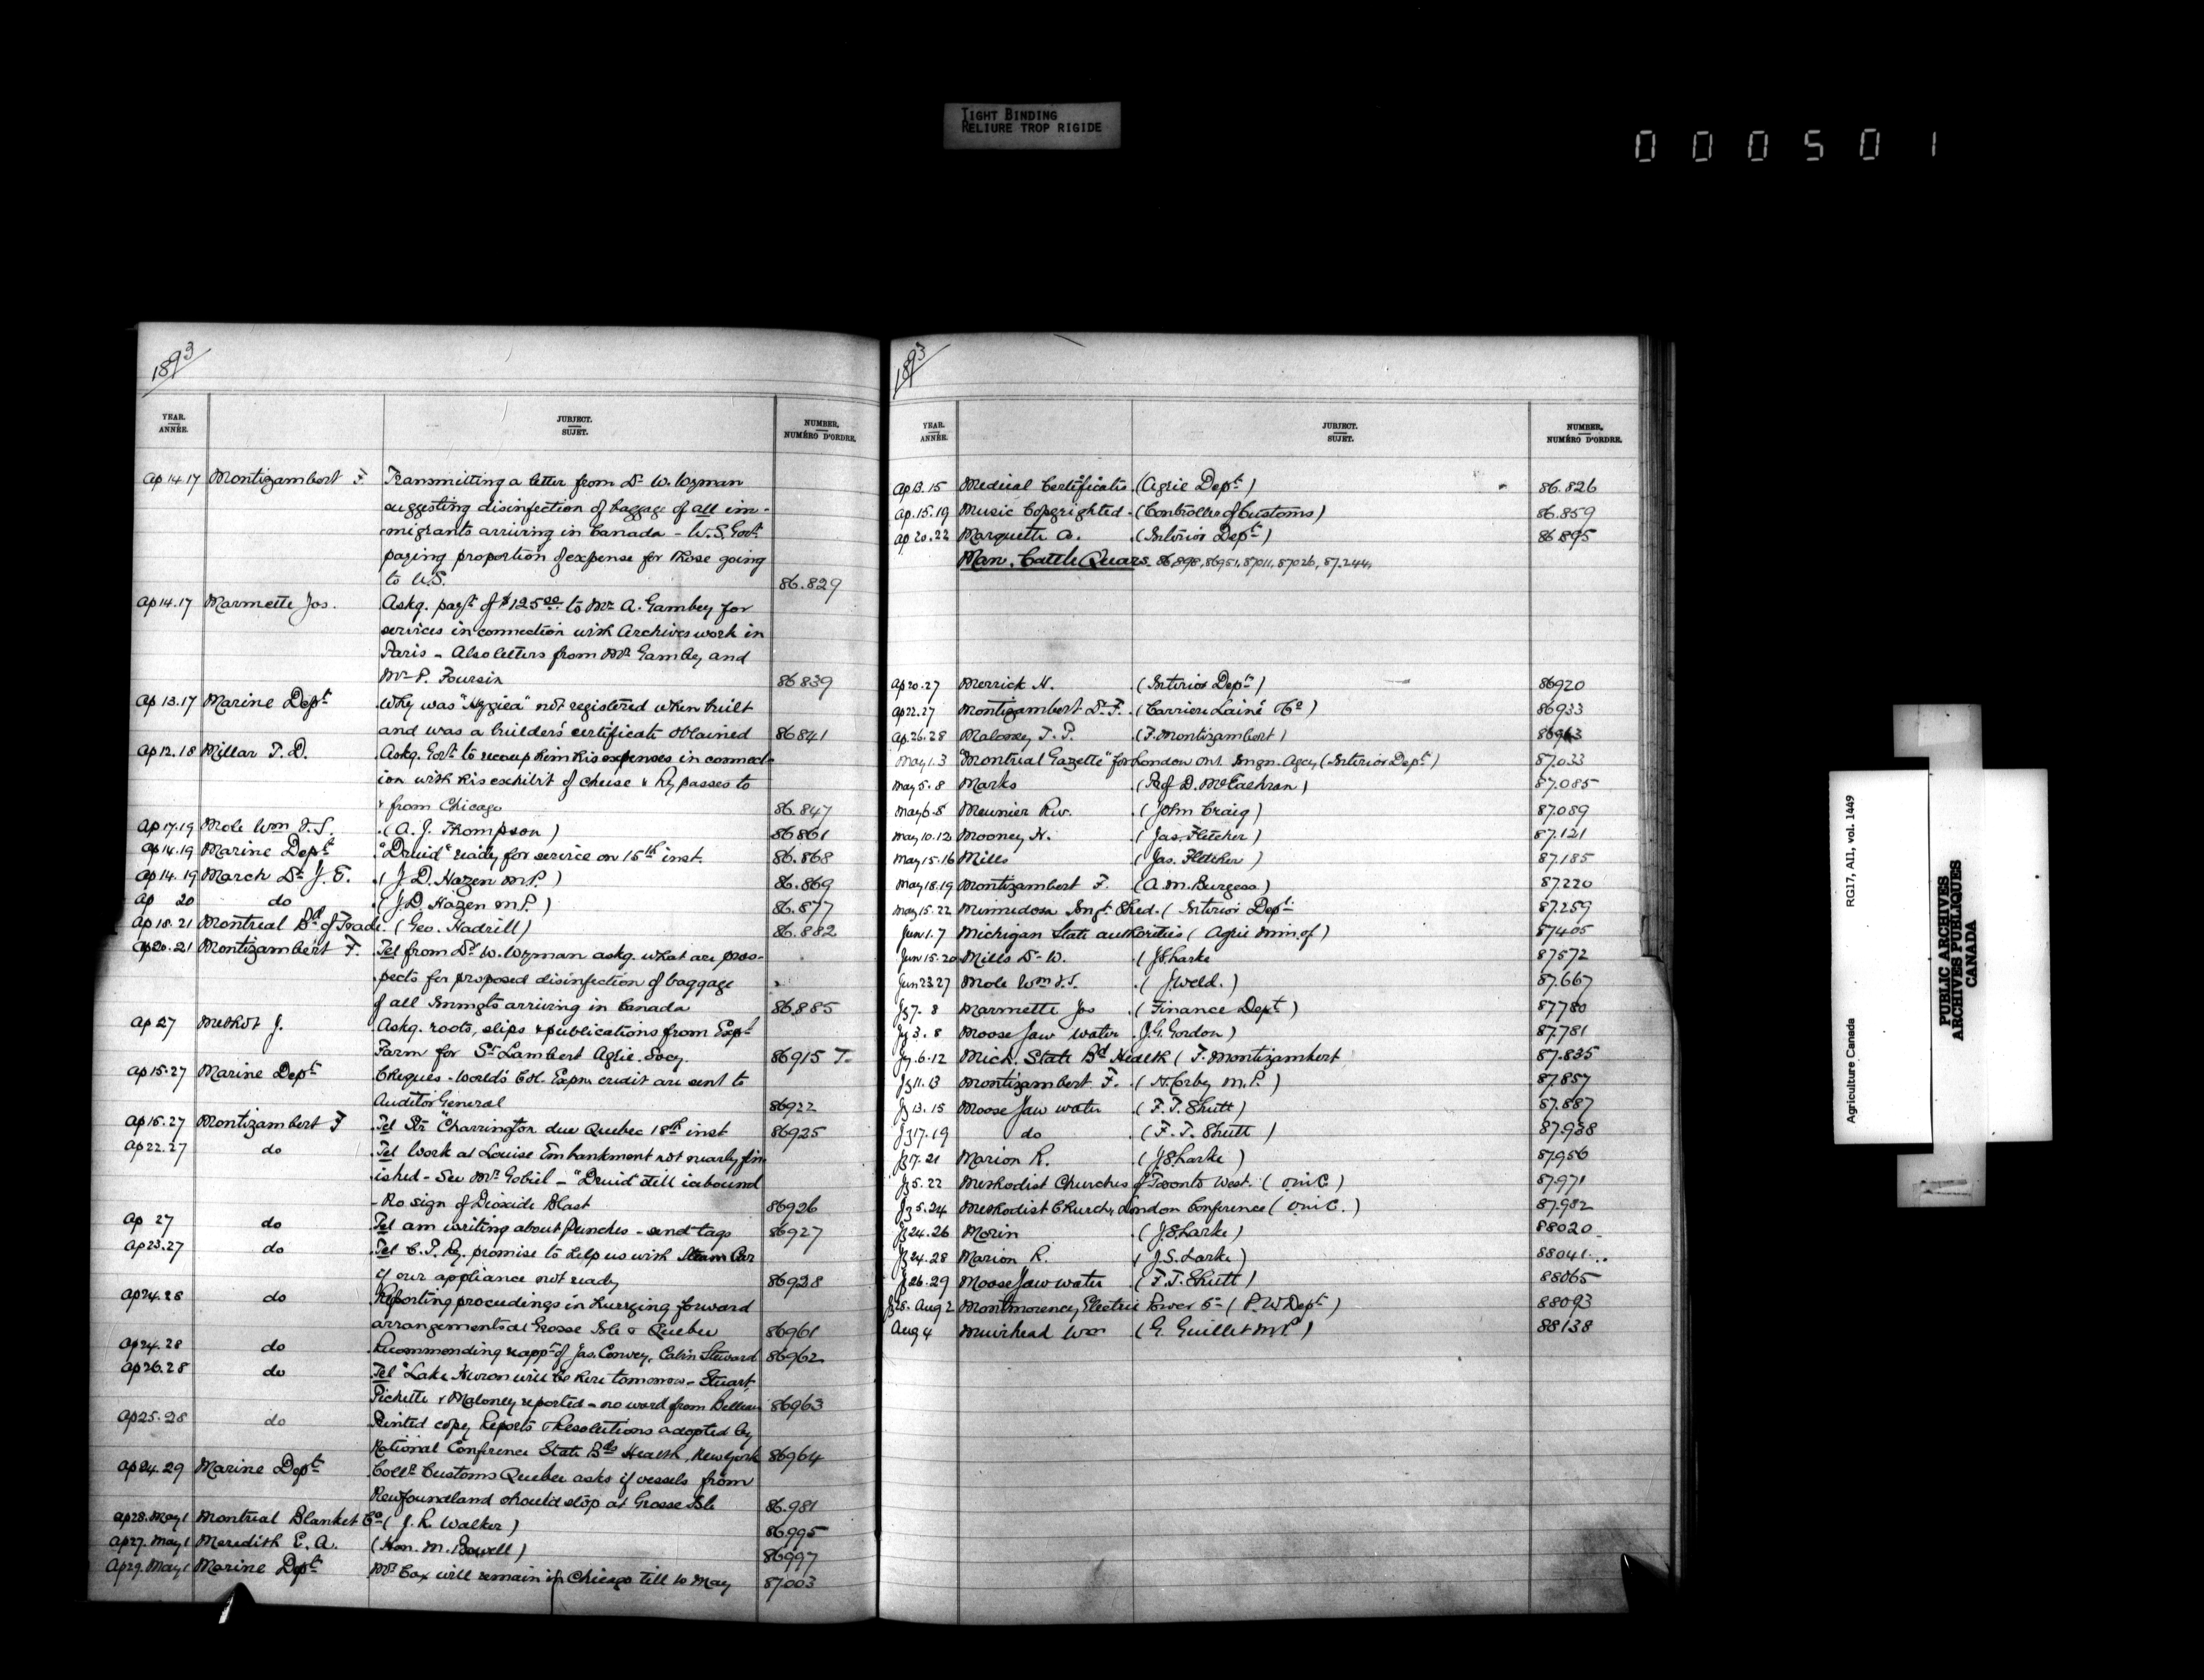 TIGHT BINDING
RELIURE TROP RIGIDE
000501
1893
YEAR. ANNÉE. JUBJECT. SUJET. NUMBER, NUMÉRO D'ORDRE.
Ap 14.17 Montizambert F Transmitting a letter from Dr W. Wyman
suggesting disinfection of baggage of all im-
migrants arriving in Canada - U.S. Govt
paying proportion of expense for those going
to U.S. 86.829
Ap 14.17 Marmette Jos. Askg. payt of $125.00 to Mr A. Gambey for
services in connection with Archives work in
Paris - Also letters from Mr Gambey and
Mr P. Foursin 86839
Ap 13.17 Marine Dept Why was "Hygiea" not registered when built
and was a builder's certificate obtained 86841
Ap 12.18 Millar T. D. Askg. Govt to recoup him his expenses in connect-
ion with his exhibit of cheese & Ry passes to
& from Chicago 86.847
Ap 17.19 Mole Wm J.S. (A. J. Thompson) 86861
Ap 14.19 Marine Dept "Druid" ready for service on 15th inst. 86.868
Ap 14.19 March Dr J. E. (J. D. Hazen M.P.) 86.869
Ap 20 do (J.D. Hazen M.P.) 86.877
Ap 18.21 Montreal Bd of Trade. (Geo. Hadrill) 86.882
Ap 20.21 Montizambert F. Tel from Dr W. Wyman askg. what are pros-
pects for proposed disinfection of baggage
of all Immgts arriving in Canada 86885
Ap 27 Methot J. Askg. roots, slips & publications from Expt
Farm for St Lambert Agric. Socy. 86915 T.
Ap 15.27 Marine Dept Cheques - World's Col. Expn credit are sent to
Auditor General 86922
Ap 15.27 Montizambert F Tel Str "Charrington due Quebec 18th inst 86925
Ap 22.27 do Tel Work at Louise Embankment not nearly fin-
ished - See Mr Gobiel - "Druid still icebound
- No sign of Dioxide Blast 86926
Ap 27 do Tel am writing about punches - send tags 86927
Ap 23.27 do Tel C.P. Ry. promise to help us with Steam Car
if our appliance not ready 86928
Ap 24.28 do Reporting proceedings in hurrying forward
arrangements at Grosse Isle & Quebec 86961
Ap 24.28 do Recommending reappt of Jas. Convey, Cabin Steward 86962
Ap 26.28 do Tel "Lake Huron will be here tomorrow - Stuart,
Pichette & Maloney reported - no word from Belleau 86963
Ap 25.28 do Printed copy Reports & Resolutions adopted by
National Conference State Bds Health, New York 86964
Ap 24.29 Marine Dept Collr Customs Quebec asks if vessels from
Newfoundland should stop at Grosse Isle 86.981
Ap 28. May 1 Montreal Blanket Co (J. R. Walker) 86995
Ap 27. May 1 Meredith E. A. (Hon. M. Bowell) 86997
Ap 29. May 1 Marine Dept Mr Cox will remain in Chicago till 10 May 87003
1893
YEAR. ANNÉE. JUBJECT. SUJET. NUMBER, NUMÉRO D'ORDRE.
Ap 13.15 Medical Certificates (Agric Dept) 86.826
Ap. 15.19 Music Copyrighted - (Controller of Customs) 86.859
Ap 20.22 Marquette A. (Interior Dept) 86895
Man. Cattle Quars. 86,898, 86951, 87011, 87026, 87.244,
Ap 20.27 Merrick H. (Interior Dept) 86920
Ap 22.27 Montizambert Dr F. (Carrier Lainé Co) 86933
Ap. 26.28 Maloney T. P. (F. Montizambert) 86963
May 1.3 "Montreal Gazette" for London Ont. Imgn. Agcy (Interior Dept) 87.033
May 5.8 Marks (Prof D. McEachran) 87.085
May 6.8 Meunier Rev. (John Craig) 87.089
May 10.12 Mooney H. (Jas. Fletcher) 87.121
May 15.16 Mills (Jas. Fletcher) 87.185
May 18.19 Montizambert F. (A. M. Burgess) 87.220
May 15.22 Minnedosa Imgt Shed. (Interior Dept 87.259
Jun 1.7 Michigan State Authorities (Agric Min. of) 87405
Jun 15.20 Mills Dr W. (J S Larke 87572
Jun 23.27 Mole Wm J.S. (J. Weld.) 87.667
Jy 7. 8 Marmette Jos (Finance Dept) 87780
Jy 3. 8 Moose Jaw Water (J. G. Gordon) 87781
Jy. 6.12 Mich. State Bd Health (F. Montizambert 87.835
Jy 11.13 Montizambert F. (H. Corby M.P.) 87.857
Jy 13.15 Moose Jaw water (F. T. Shutt) 87.887
Jy 17.19 do (F. T. Shutt) 87.938
Jy 17.21 Marion R. (J S Larke) 87956
Jy 5.22 Methodist Churches of Toronto West. (O in C) 87.971
Jy 5.24 Methodist Church, London Conference (O in C.) 87.982
Jy 24.26 Morin (J. S. Larke) 88020
Jy 24.28 Marion R. (J. S. Larke) 88041
Jy 26.29 Moose Jaw water (F. T. Shutt) 88065
Jy 28. Aug 2 Montmorency Electric Power Co (P. W Dept) 88093
Aug 4 Muirhead Wm (G. Guillet M.P.) 88138
Agriculture Canada RG17, A11, vol. 1449
PUBLIC ARCHIVES
ARCHIVES PUBLIQUES
CANADA